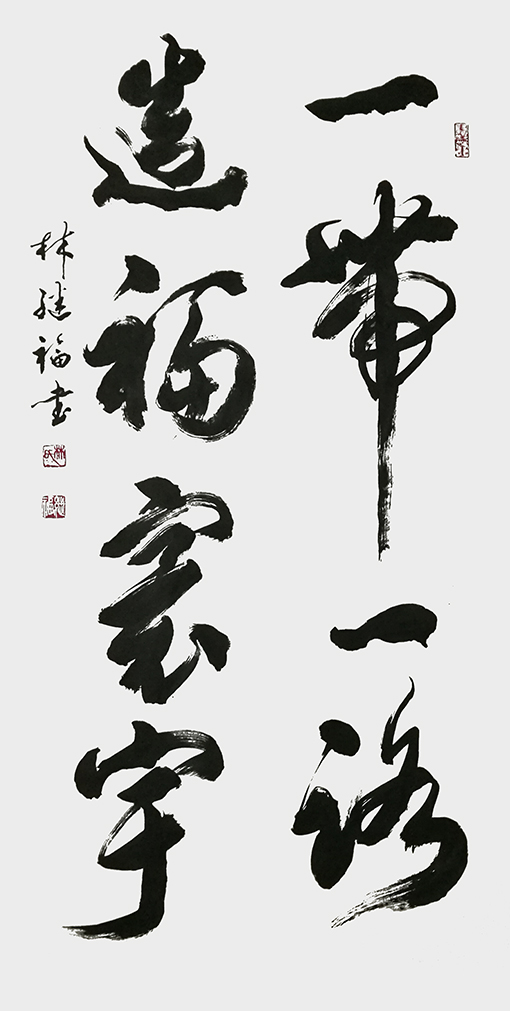 一带一路
造福寰宇
林继福书